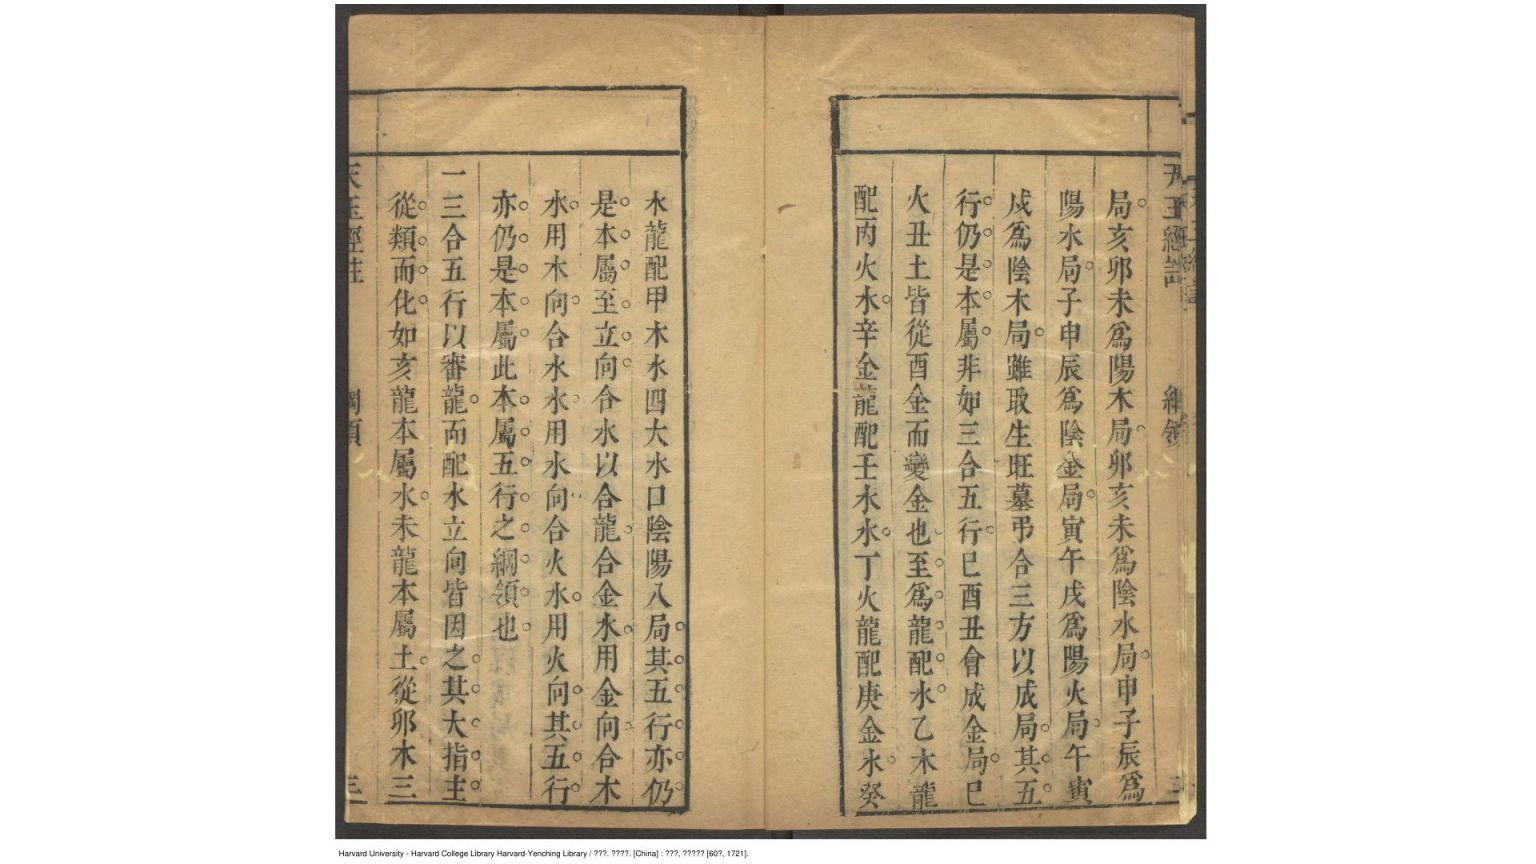 局亥卯未爲陽木局卯亥未爲陰水局申子辰爲
陽水局子申辰爲陰金局寅午戌爲陽火局午寅
戍爲陰木局雖取生旺墓弔合三方以成局其五
行仍是本屬非如三合五行巳酉丑會成金局巳
火丑土皆從酉金而變金也至爲龍配水乙木龍
配丙火水辛金龍配壬水水丁火龍配庚金水癸
水龍配甲木水四大水口陰陽八局其五行亦仍
是本屬至立向合水以合龍合金水用金向合木
水用木向合水水用水向合火水用火向其五行
亦仍是本屬此本屬五行之綱領也
一三合五行以審龍而配水立向皆因之其大指主
從類而化如亥龍本屬水未龍本屬土從卯木三
天玉經註
綱領
三
Harvard University - Harvard College Library Harvard-Yenching Library / ???. ????. [China] : ???, ????? [60?, 1721].